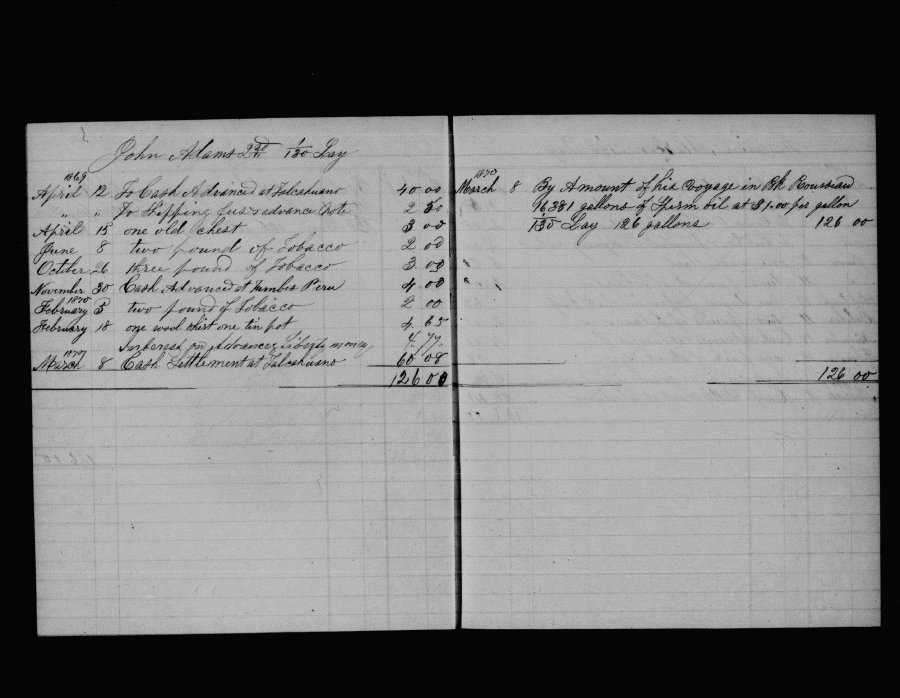 John Adams 2nd 1/130 Lay
1869
April 12 To Cash Advanced at Talcahuano 40 00
" " To Shipping fees & advance Note 2 50
April 15 one old chest 3 00
June 8 two pound of Tobacco 2 00
October 26 three pound of Tobacco 3 00
November 30 Cash Advanced at Tumbes Peru 4 00
1870
February 5 two pound of Tobacco 2 00
February 18 one wool shirt one tin pot 4.65
Interest on Advances, liberty money 4.77
1870
March 8 Cash Settlement at Talcahuano 60.08
126 00
1870
March 8 By Amount of his voyage in Bk Rousseau
16381 gallons of Sperm oil at $1.00 per gallon
1/130 Lay 126 gallons 126 00
126 00